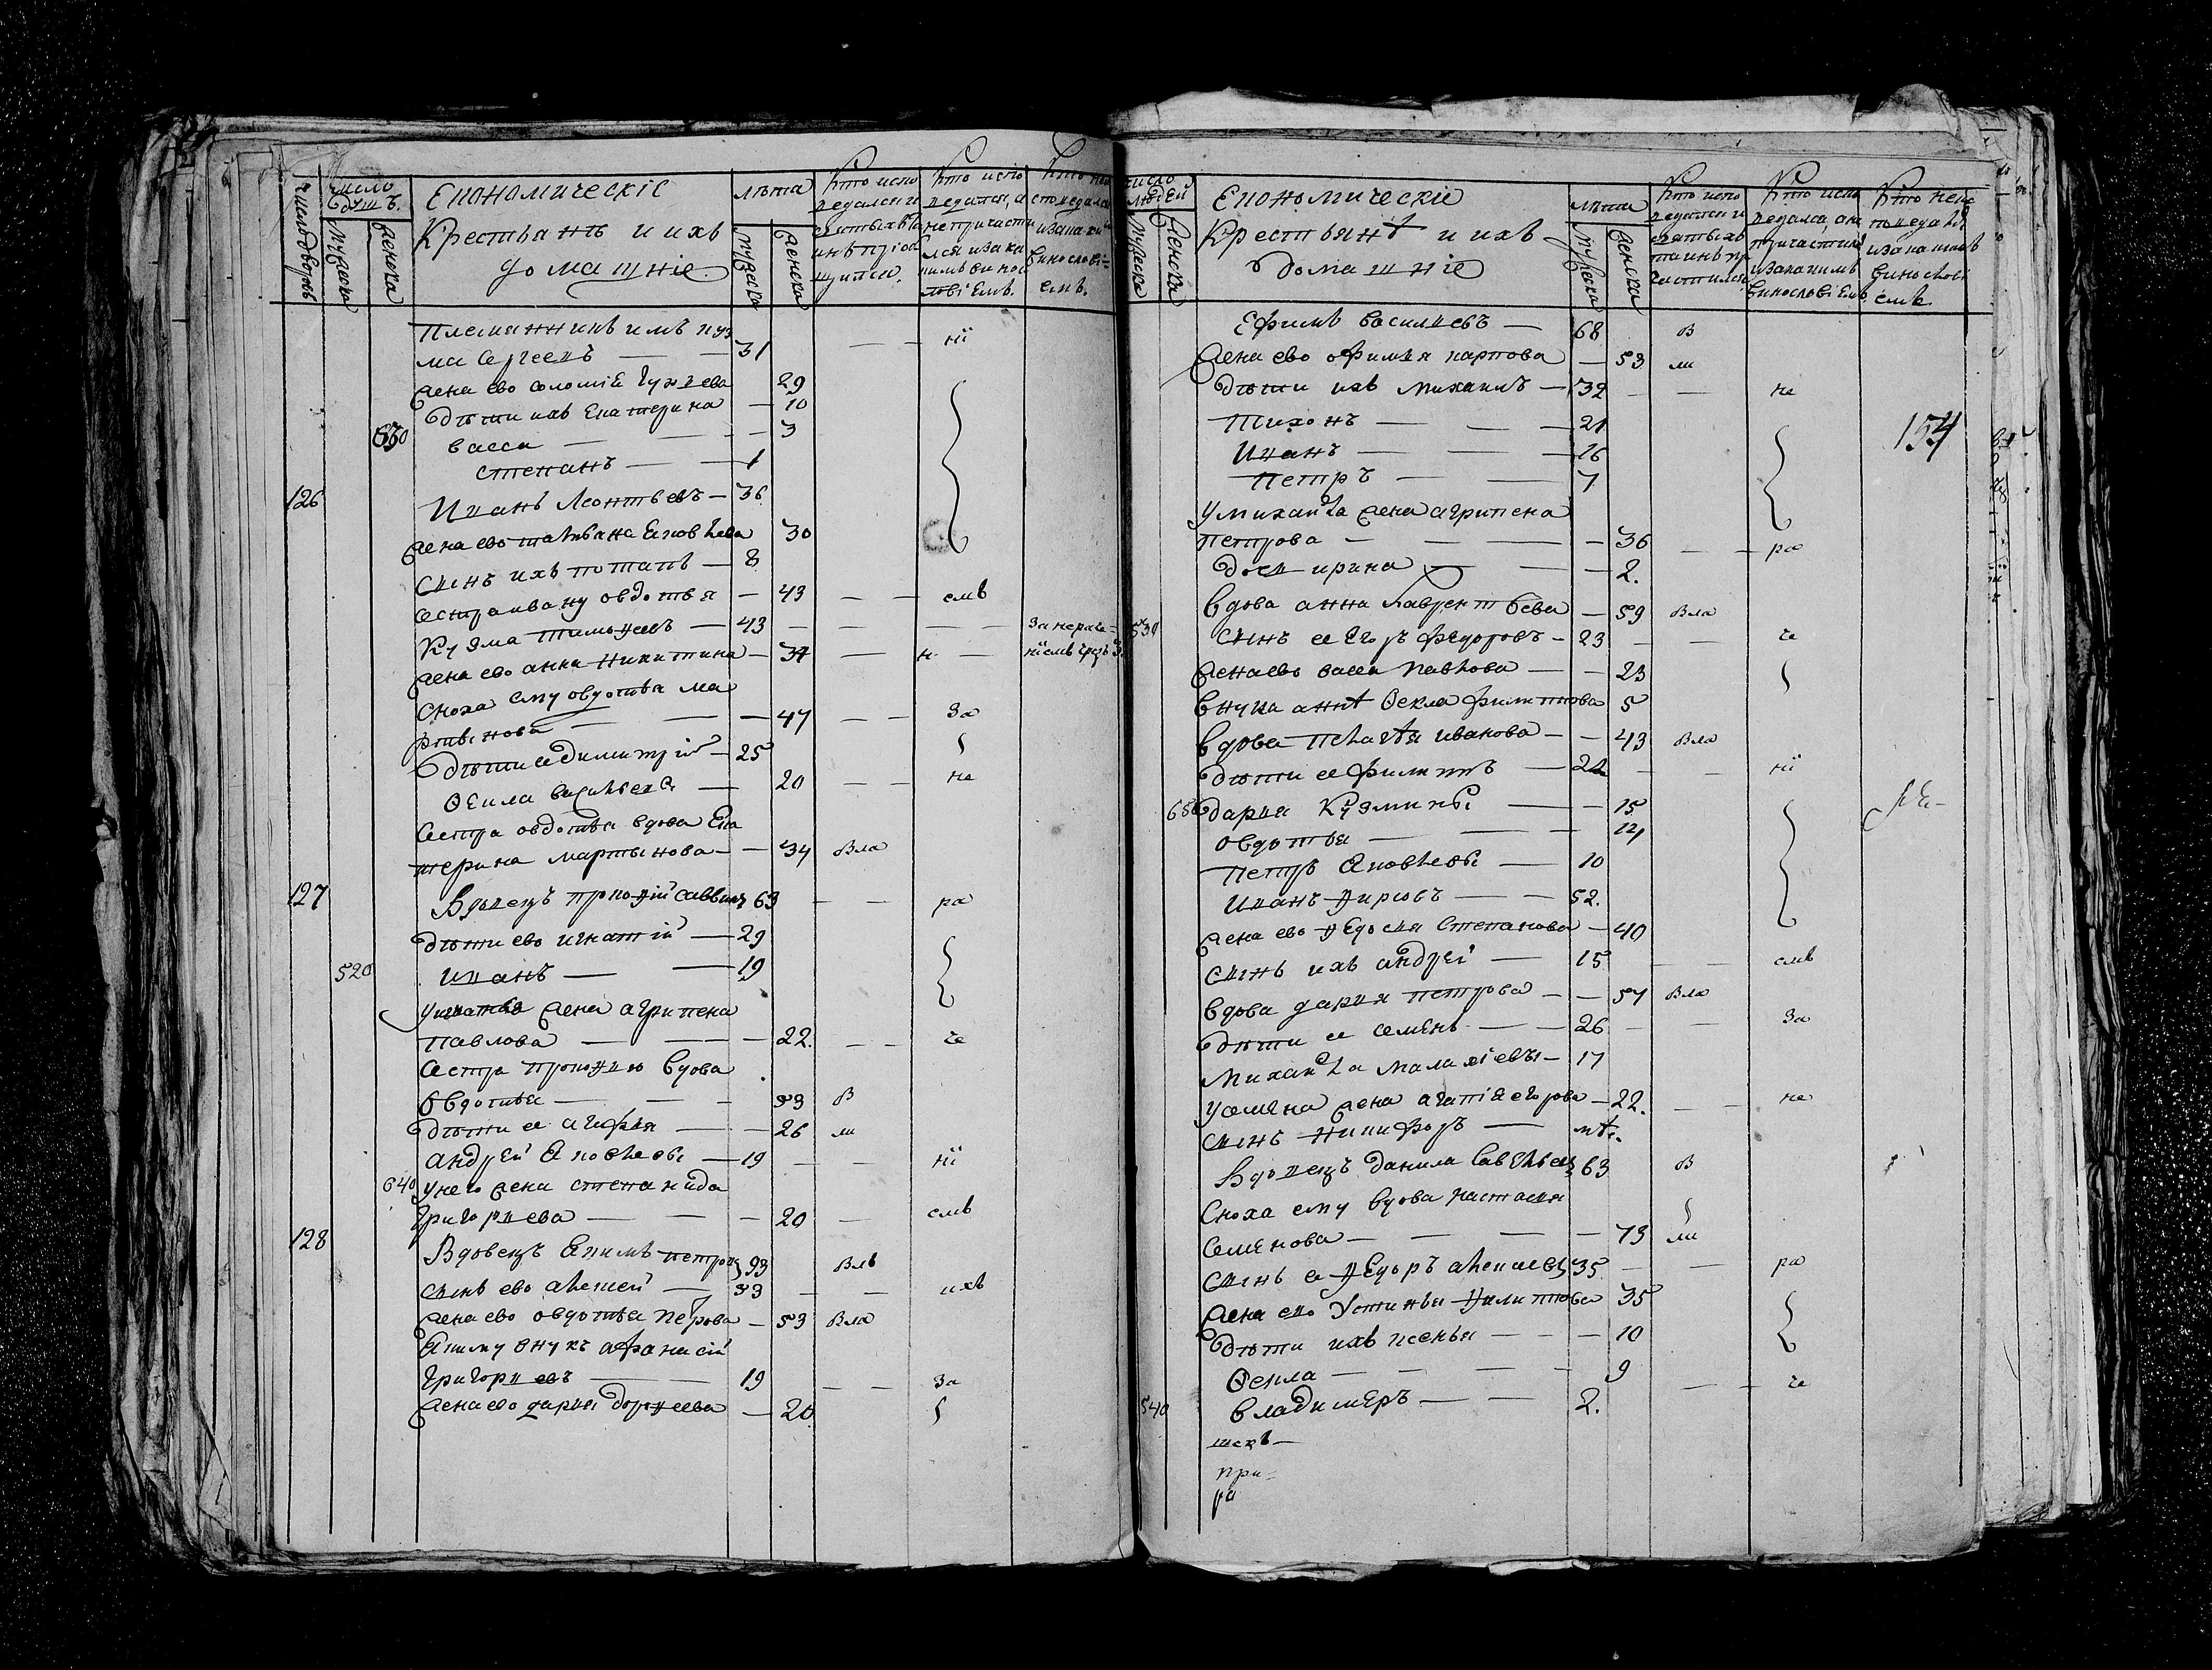 число дворовъ
число душъ.
мужеска
женска
Економическіе
Крестьянъ и ихъ
домашніе
лѣта
мужеска
женска
Кто испо
ведался и
святыхъ та
инъ пріоб
щился.
Кто испо
ведался, а
не причасти
лся и за ка
кимъ винос
ловіемъ.
Племянникъ имъ куз
ма Сергеевъ — 31 — ніи
жена ево соломіѣ Гурьева 29
дѣти ихъ Екатерина — 10
630 васса — 3
степанъ — 1
126 Иванъ Леонтьевъ — 36
жена ево татьвана Яковлева 30
сынъ ихъ потапъ — 8
сестра ивану овдотья — 43 — емъ
Кузма — 43 — за нераче-
жена ево анна Никитина — 34 — н
сноха ему овдотья ма
ртынова — 47 — За
дѣти ее димитрій — 25
Ѳекла васильевa — 20 — не
Сестра овдотьи вдова Ека
терина мартынова — 34 Вла
127 Вдовецъ прокофій саввинъ 63 — ра
дѣти ево игнатій — 29
520 Иванъ — 19
у игнатья жена агрипена
Павлова — 22. — че
Сестра прокофью вдова
Овдотья — 53 В
дѣти ее агафья — 26 ли
андрей Яковлевы — 19 — ніи
640 у него жена степанида
Григорьева — 20 — емъ
128 Вдовецъ Екимъ петровъ 93 Влѣ
сынъ ево алексей — 53 — ихъ
жена ево овдотья петрова — 53 Вла
Екиму внукъ афанасій
Григорьевъ — 19 — За
жена ево дарья дорофеева — 20
число
людей
мужеска
женска
Економическіе
Крестьянѣ и ихъ
домашніе
лѣта
мужеска
женска
Кто испо
ведался и
святыхъ
таинъ пр
частился
Кто испо
ведался, а не
причастился
и за какимъ
винословіемъ
Кто неис
поведался
и за какимъ
винослові
емъ.
Ефимъ васильевъ — 68 В
жена ево офимья карпова — 53 ли
дѣти ихъ михаилъ — 32 — не
Тихонъ — 21
154
Иванъ — 16
Петръ — 7
у михайла жена агрипена
петрова — 36 — ра
дочь ирина — 2.
вдова анна лаврентьева — 59 Вла
530 сынъ ее Егоръ федоровъ — 23 — че
жена ево васса павлова — 23
внука аннѣ Ѳекла филиппова 5
вдова пелагѣя иванова — 43 Вла
дѣти ее филиппъ — 22 — ніи
650 дарья Кузмины — 15
овдотья — 14
петръ Яковлевы — 10
Иванъ фирсовъ — 52.
жена ево федосья степанова — 40
сынъ ихъ андрей — 15 — емъ
вдова дарья петрова — 57 Вла
дѣти ее семенъ — 26 — За
михайла малахіевы — 17
у семена жена агапіѣ егорова — 22. — не
сынъ никифоръ —
Вдовецъ данила савельевъ 63 В
Сноха ему вдова настасья
семенова — 73 ли
сынъ ее федоръ алексеевъ 35 — ра
жена ево устинья филиппова 35
дѣти ихъ ксенья — 10
Ѳекла — 9
540 владимеръ — 2. — че
при-
ра